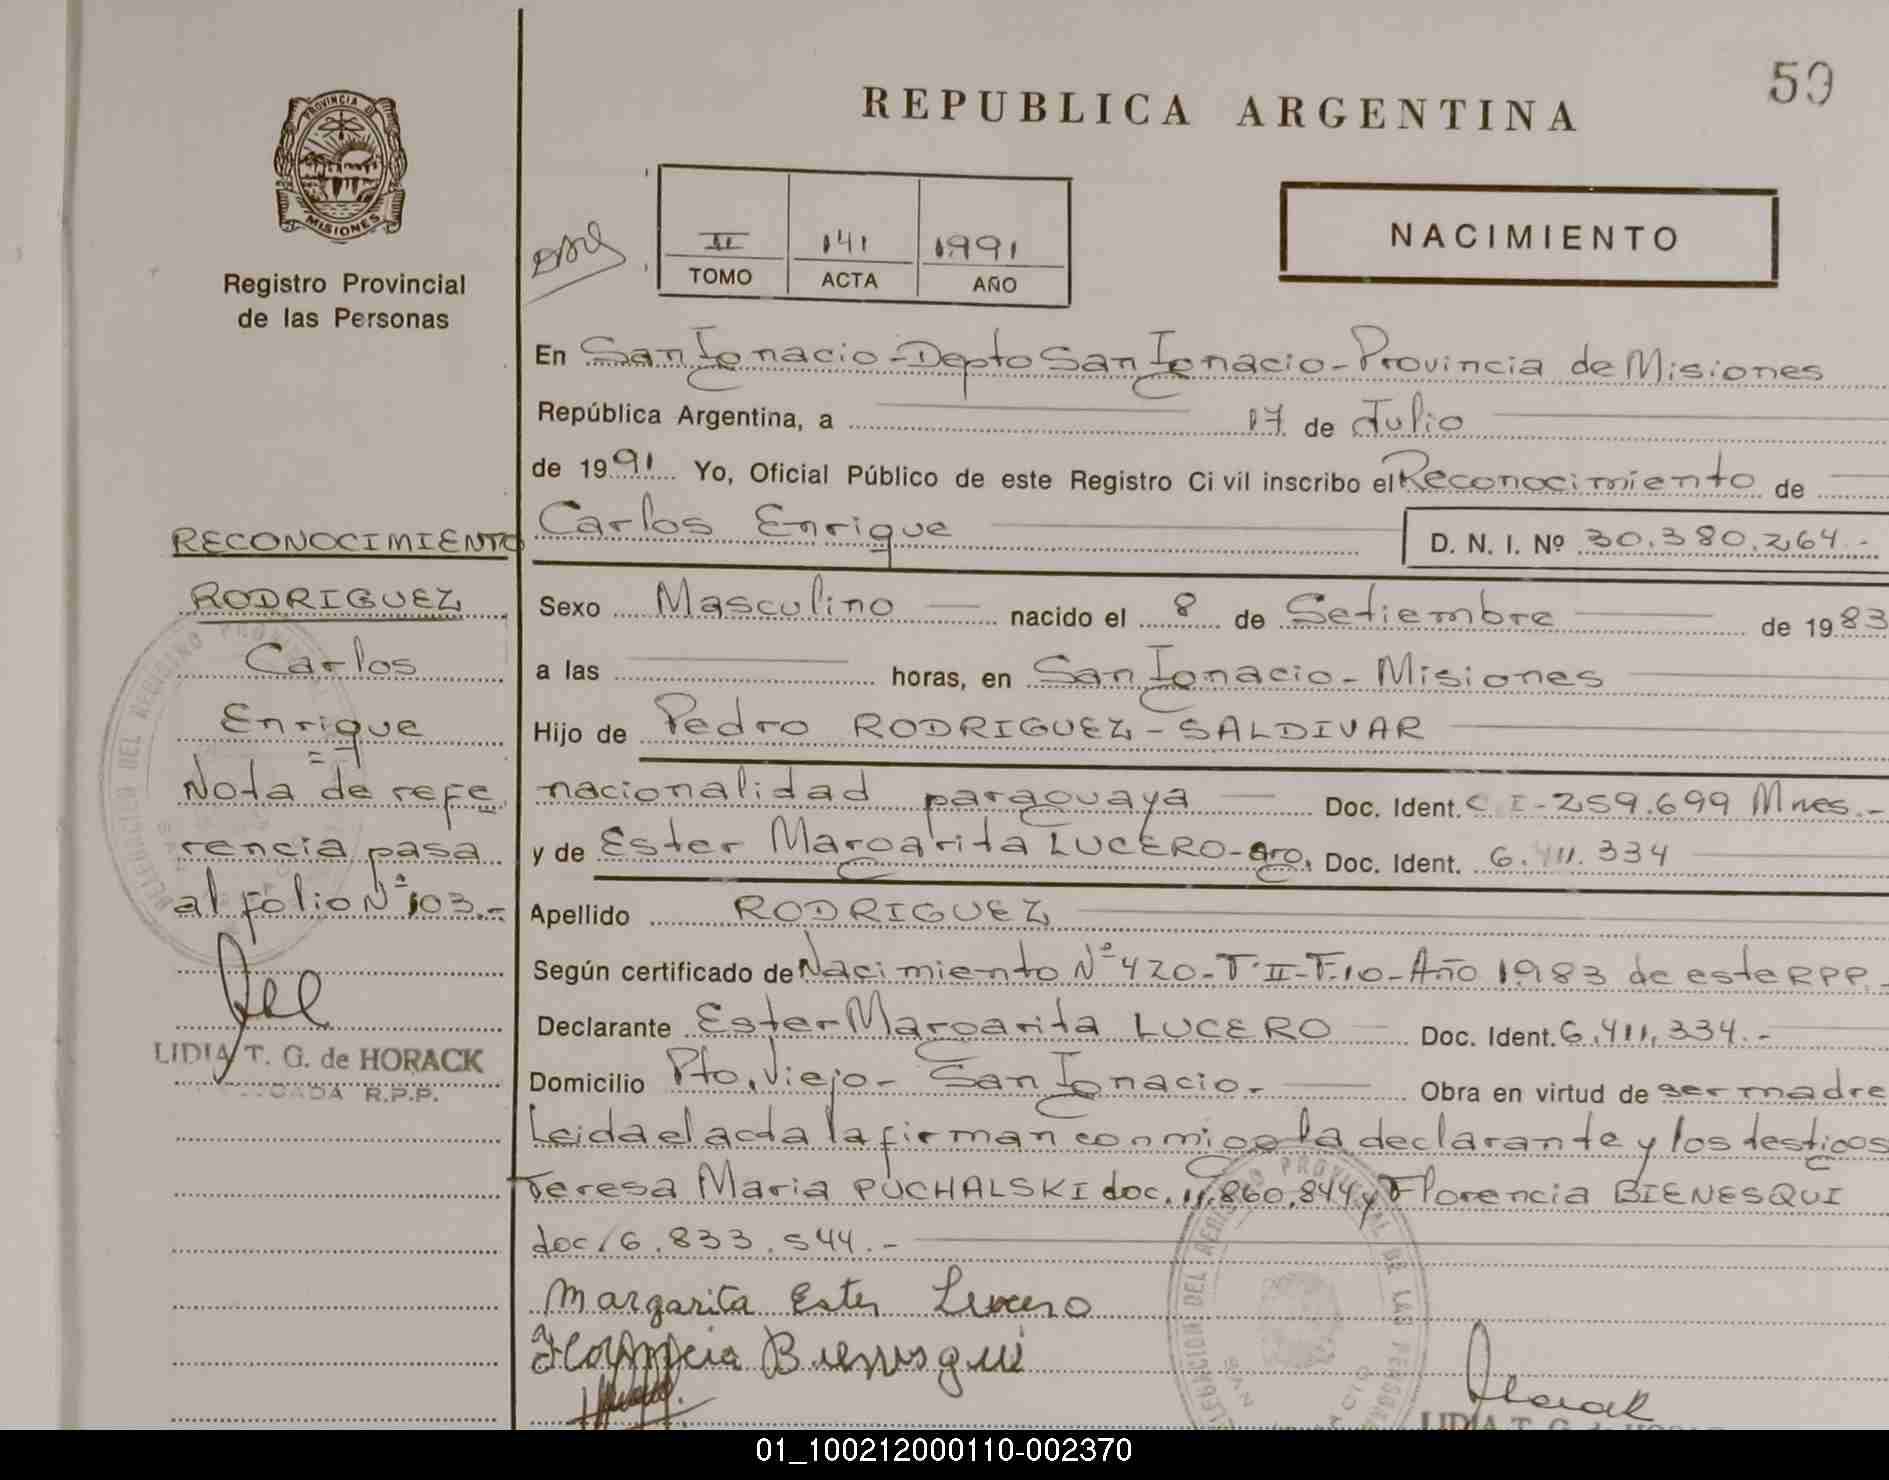 59
REPUBLICA ARGENTINA
PROVINCIA D
MISIONES
Registro Provincial
de las Personas
II 141 1991
TOMO ACTA AÑO
NACIMIENTO
En San Ignacio - Depto San Ignacio - Provincia de Misiones
República Argentina, a 17 de Julio
de 1991 Yo, Oficial Público de este Registro Civil inscribo el Reconocimiento de
Carlos Enrique D. N. I. Nº 30.380.264.-
Sexo Masculino nacido el 8 de Setiembre de 1983
a las horas, en San Ignacio - Misiones
Hijo de Pedro RODRIGUEZ - SALDIVAR
nacionalidad paraguaya Doc. Ident. C I - 259.699 Mnes.-
y de Ester Margarita LUCERO - arg. Doc. Ident. 6.411.334
Apellido RODRIGUEZ
Según certificado de Nacimiento Nº 420 - T. II - F. 10 - Año 1983 de este RPP.-
Declarante Ester Margarita LUCERO Doc. Ident. 6.411.334.-
Domicilio Pto. Viejo - San Ignacio.- Obra en virtud de ser madre
Leida el acta la firman conmigo la declarante y los testigos
Teresa Maria PUCHALSKI doc. 11.860.844 y Florencia BIENESQUI
doc/6.833.544.-
Margarita Ester Lucero
Florencia Bienesqui
RECONOCIMIENTO
RODRIGUEZ
Carlos
Enrique
Nota de refe
rencia pasa
al folio Nº 103.-
LIDIA T. G. de HORACK
R.P.P.
DELEGACION DEL REGISTRO PROVINCIAL
DELEGACION DEL REGISTRO PROVINCIAL DE LAS PERSONAS
SAN IGNACIO
Horack
LIDIA T. G. de HORACK
01_100212000110-002370